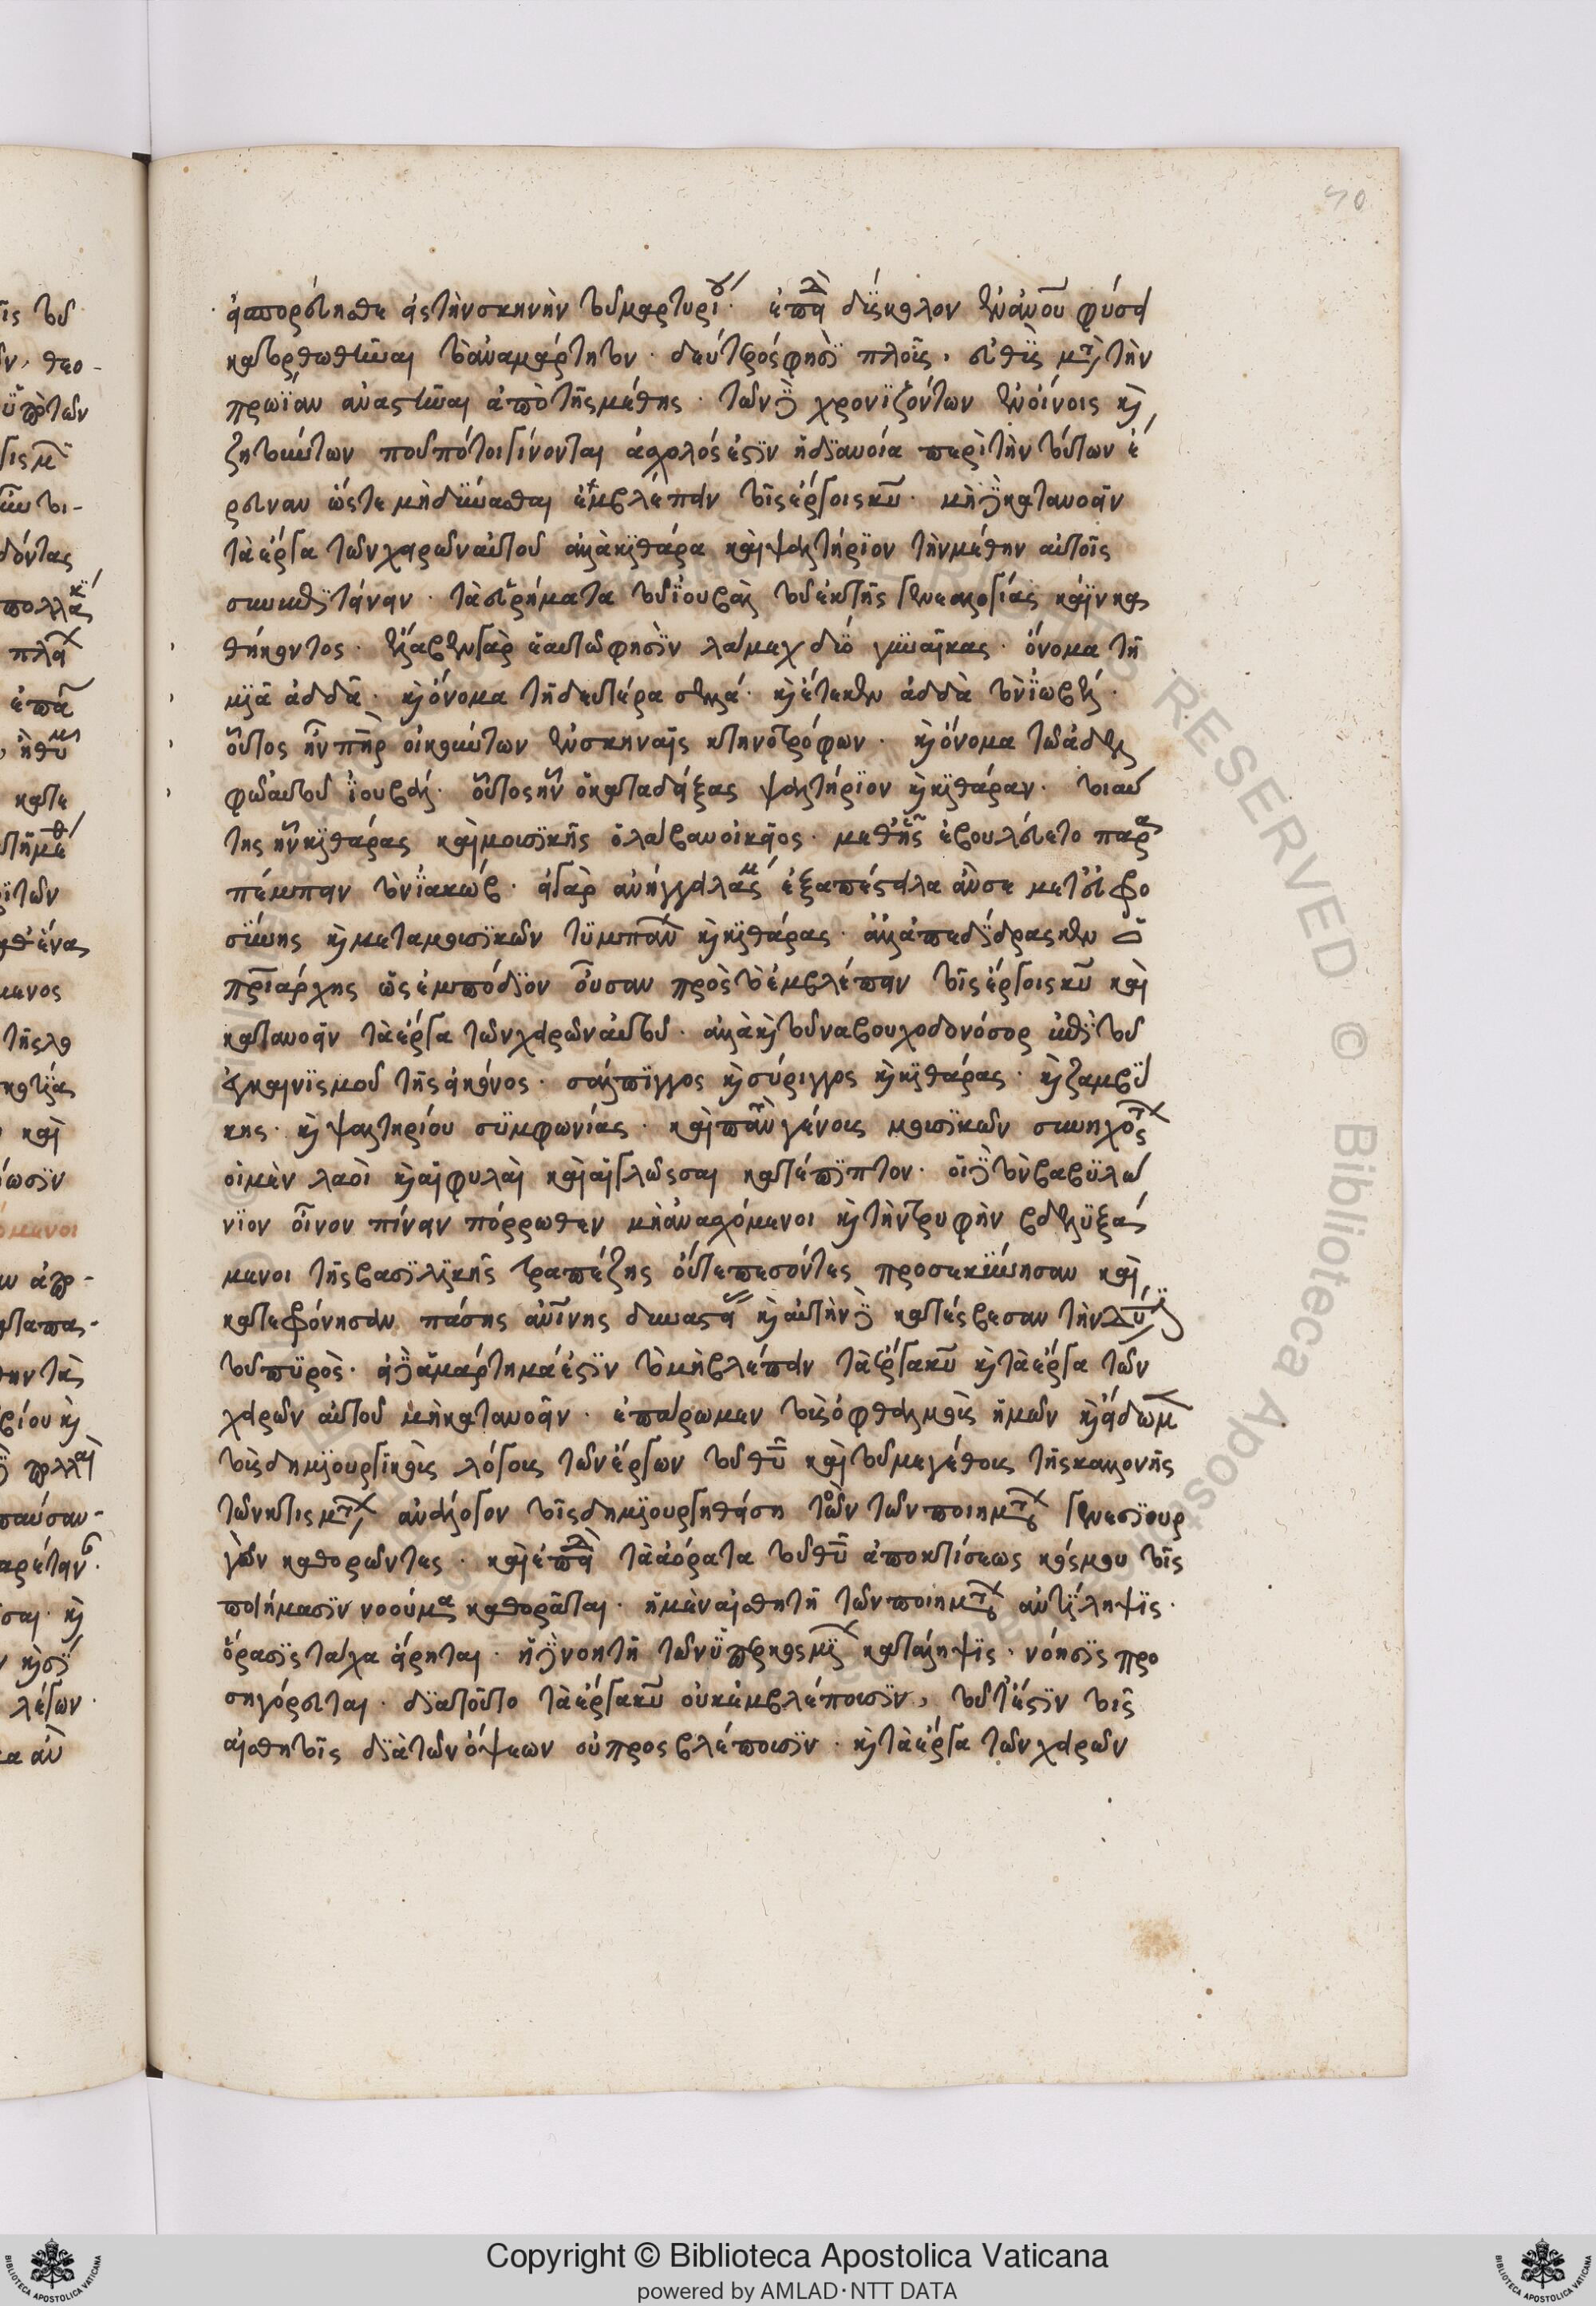 40
εἰσπορεύησθε εἰς τὴν σκηνὴν τοῦ μαρτυρίου. ἐπεὶ δὲ δύσκολον ἐν ἀνου φύσει
κατορθωθῆναι τὸ ἀναμάρτητον. δεύτερός φησι πλοῦς, εὐθὺς μετὰ τὴν
πρωΐαν ἀναστῆναι ἀπὸ τῆς μέθης. τῶν δὲ χρονιζόντων ἐν οἴνοις κὶ
ζητούντων ποῦ πότοι γίνονται ἄσχολός ἐστιν ἡ διάνοια περὶ τὴν τούτων ἔ
ρευναν ὥστε μὴ δύνασθαι ἐμβλέπειν τοῖς ἔργοις κυ. μὴ δὲ κατανοεῖν
τὰ ἔργα τῶν χειρῶν αὐτοῦ ἀλλὰ κιθάρα καὶ ψαλτήριον τὴν μέθην αὐτοῖς
συνεπιτείνειν. τὰ εὑρήματα τοῦ ἰουβὰλ τοῦ ἐκ τῆς γενεαλογίας κάϊν κα
θήκοντος. ἔλαβεν γὰρ ἑαυτῷ φησὶν λάμεχ δύο γυναῖκας. ὄνομα τῇ
μιᾷ ἀδδᾶ. κὶ ὄνομα τῇ δευτέρα σελλά. κὶ ἔτεκεν ἀδδὰ τὸν ἰωβήλ.
οὗτος ἦν πηρ οἰκούντων ἐν σκηναῖς κτηνοτρόφων. κὶ ὄνομα τῷ ἀδελ
φῷ αὐτοῦ ἰουβάλ. οὗτος ἦν ὁ καταδείξας ψαλτήριον κὶ κιθάραν. τοιαύ
της ἦν κιθάρας καὶ μουσικῆς ὁ λάβαν οἰκεῖος. μεθ' ἧς ἐβουλεύετο παρα
πέμπειν τὸν ἰακώβ. εἰ γὰρ ἀνήγγειλάς μοι ἐξαπέστειλα ἄν σε μετ' εὐφρο
σύνης κὶ μετὰ μουσικῶν τυμπάνων κὶ κιθάρας. ἀλλ' ἀπεδίδρασκεν ὁ
πριάρχης ὡς ἐμπόδιον οὖσαν πρὸς τὸ ἐμβλέπειν τοῖς ἔργοις κυ καὶ
κατανοεῖν τὰ ἔργα τῶν χειρῶν αὐτοῦ. ἀλλὰ κὶ τοῦ ναβουχοδονόσορ ἐπὶ τοῦ
ἐγκαινισμοῦ τῆς εἰκόνος. σάλπιγγος κὶ σύριγγος κὶ κιθάρας. κὶ σαμβύ
κης. κὶ ψαλτηρίου συμφωνίας. καὶ παντὸς γένους μουσικῶν συνηχοῦντος
οἱ μὲν λαοὶ κὶ αἱ φυλαὶ καὶ αἱ γλῶσσαι κατέπιπτον. οἱ δὲ τὸν βαβυλώ
νιον οἶνον πίνειν πόρρωθεν μὴ ἀνασχόμενοι κὶ τὴν τρυφὴν βδελυξά
μενοι τῆς βασιλικῆς τραπέζης οὔτε πεσόντες προσεκύνησαν καὶ
κατεφρόνησαν πάσης δυναστείας κὶ αὐτὴν δὲ κατέσβεσαν τὴν δύναμιν
τοῦ πυρὸς. εἰ δὲ ἁμάρτημά ἐστιν τὸ μὴ βλέπειν τὰ ἔργα κυ κὶ τὰ ἔργα τῶν
χειρῶν αὐτοῦ μὴ κατανοεῖν. ἐπάρωμεν τοὺς ὀφθαλμοὺς ἡμῶν κὶ εἴδωμεν
τοὺς δημιουργικοὺς λόγους τῶν ἔργων τοῦ θυ καὶ τοῦ μεγέθους τῆς καλλονῆς
τῶν κτισμάτων ἀνάλογον τοῖς δημιουργηθεῖσι τὸν τῶν ποιημάτων γενεσιουρ
γὸν καθορῶντες. καὶ ἐπεὶ δὲ τὰ ἀόρατα τοῦ θυ ἀπὸ κτίσεως κόσμου τοῖς
ποιήμασιν νοούμενα καθορᾶται. ἡ μὲν αἰσθητὴ τῶν ποιημάτων ἀντίληψις.
ὅρασις τάχα εἴρηται. ἡ δὲ νοητὴ τῶν ὑπερκοσμίων κατάληψις. νόησις προ
σηγόρευται. διὰ τοῦτο τὰ ἔργα κυ οὐκ ἐμβλέπουσιν, τουτέστιν τοῖς
αἰσθητοῖς διὰ τῶν ὄψεων οὐ προσβλέπουσιν. κὶ τὰ ἔργα τῶν χειρῶν
Copyright © Biblioteca Apostolica Vaticana
powered by AMLAD·NTT DATA